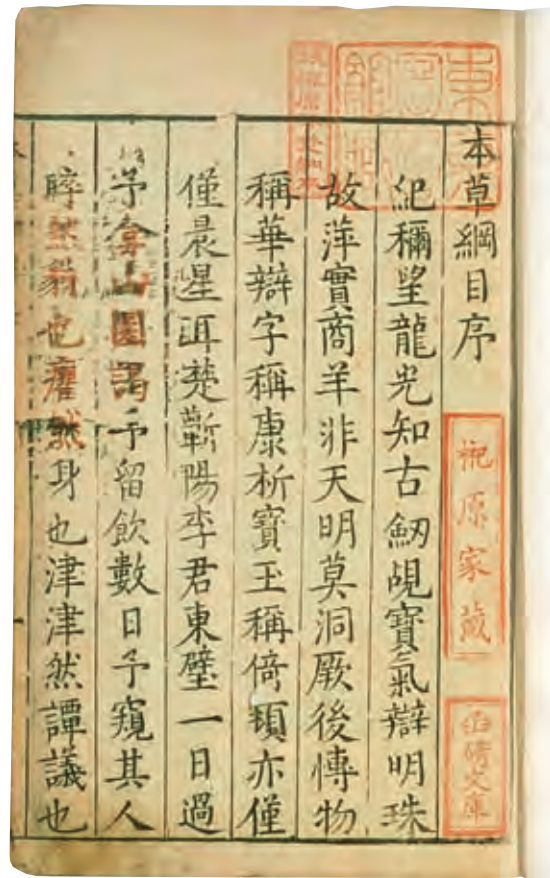 本草綱目序
紀稱望龍光知古劒覘寶氣辯明珠
故萍實商羊非天明莫洞厥後博物
稱華辯字稱康析寶玉稱倚頓亦僅
僅晨星耳楚蘄陽李君東璧一日過
予弇山園謁予留飲數日予窺其人
睟然貌也癯然身也津津然譚議也
原家藏
文庫